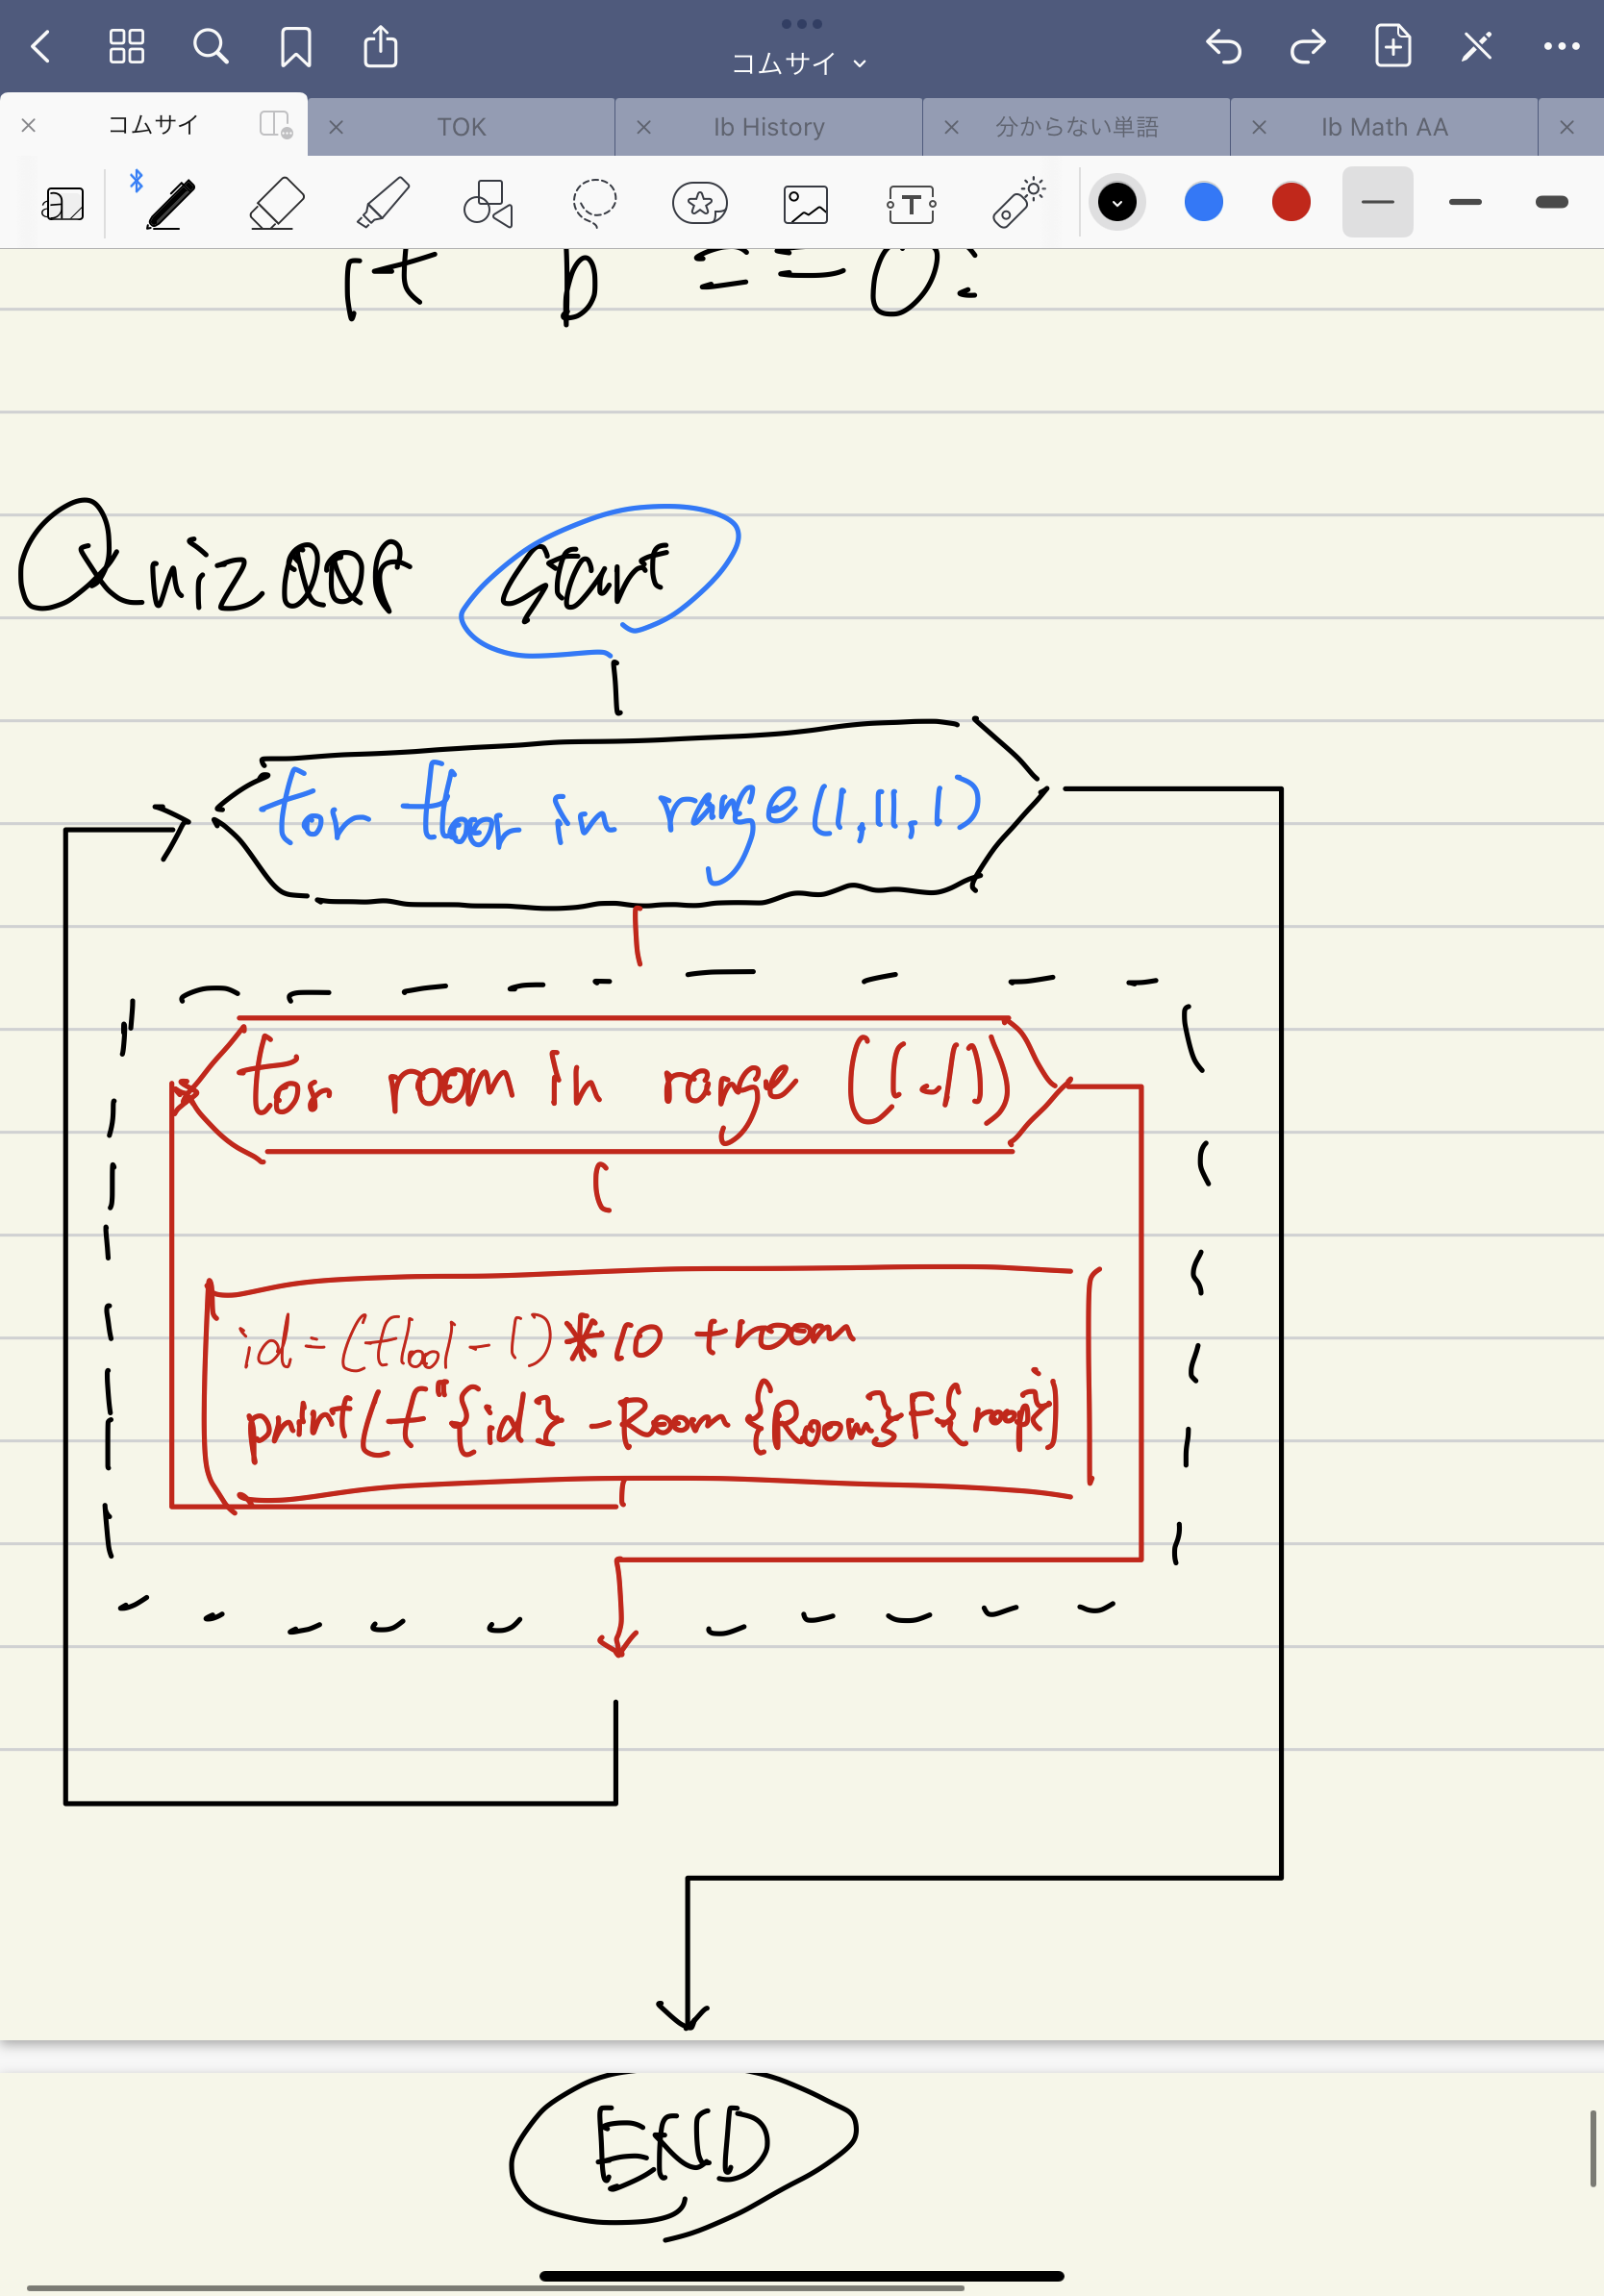 コムサイ
コムサイ TOK Ib History 分からない単語 Ib Math AA
if b == 0:
Start
for floor in range(1,11,1)
for room in range (1,11)
id=(floor-1)*10 +room
print(f"{id} -Room {Room}F{room}
END